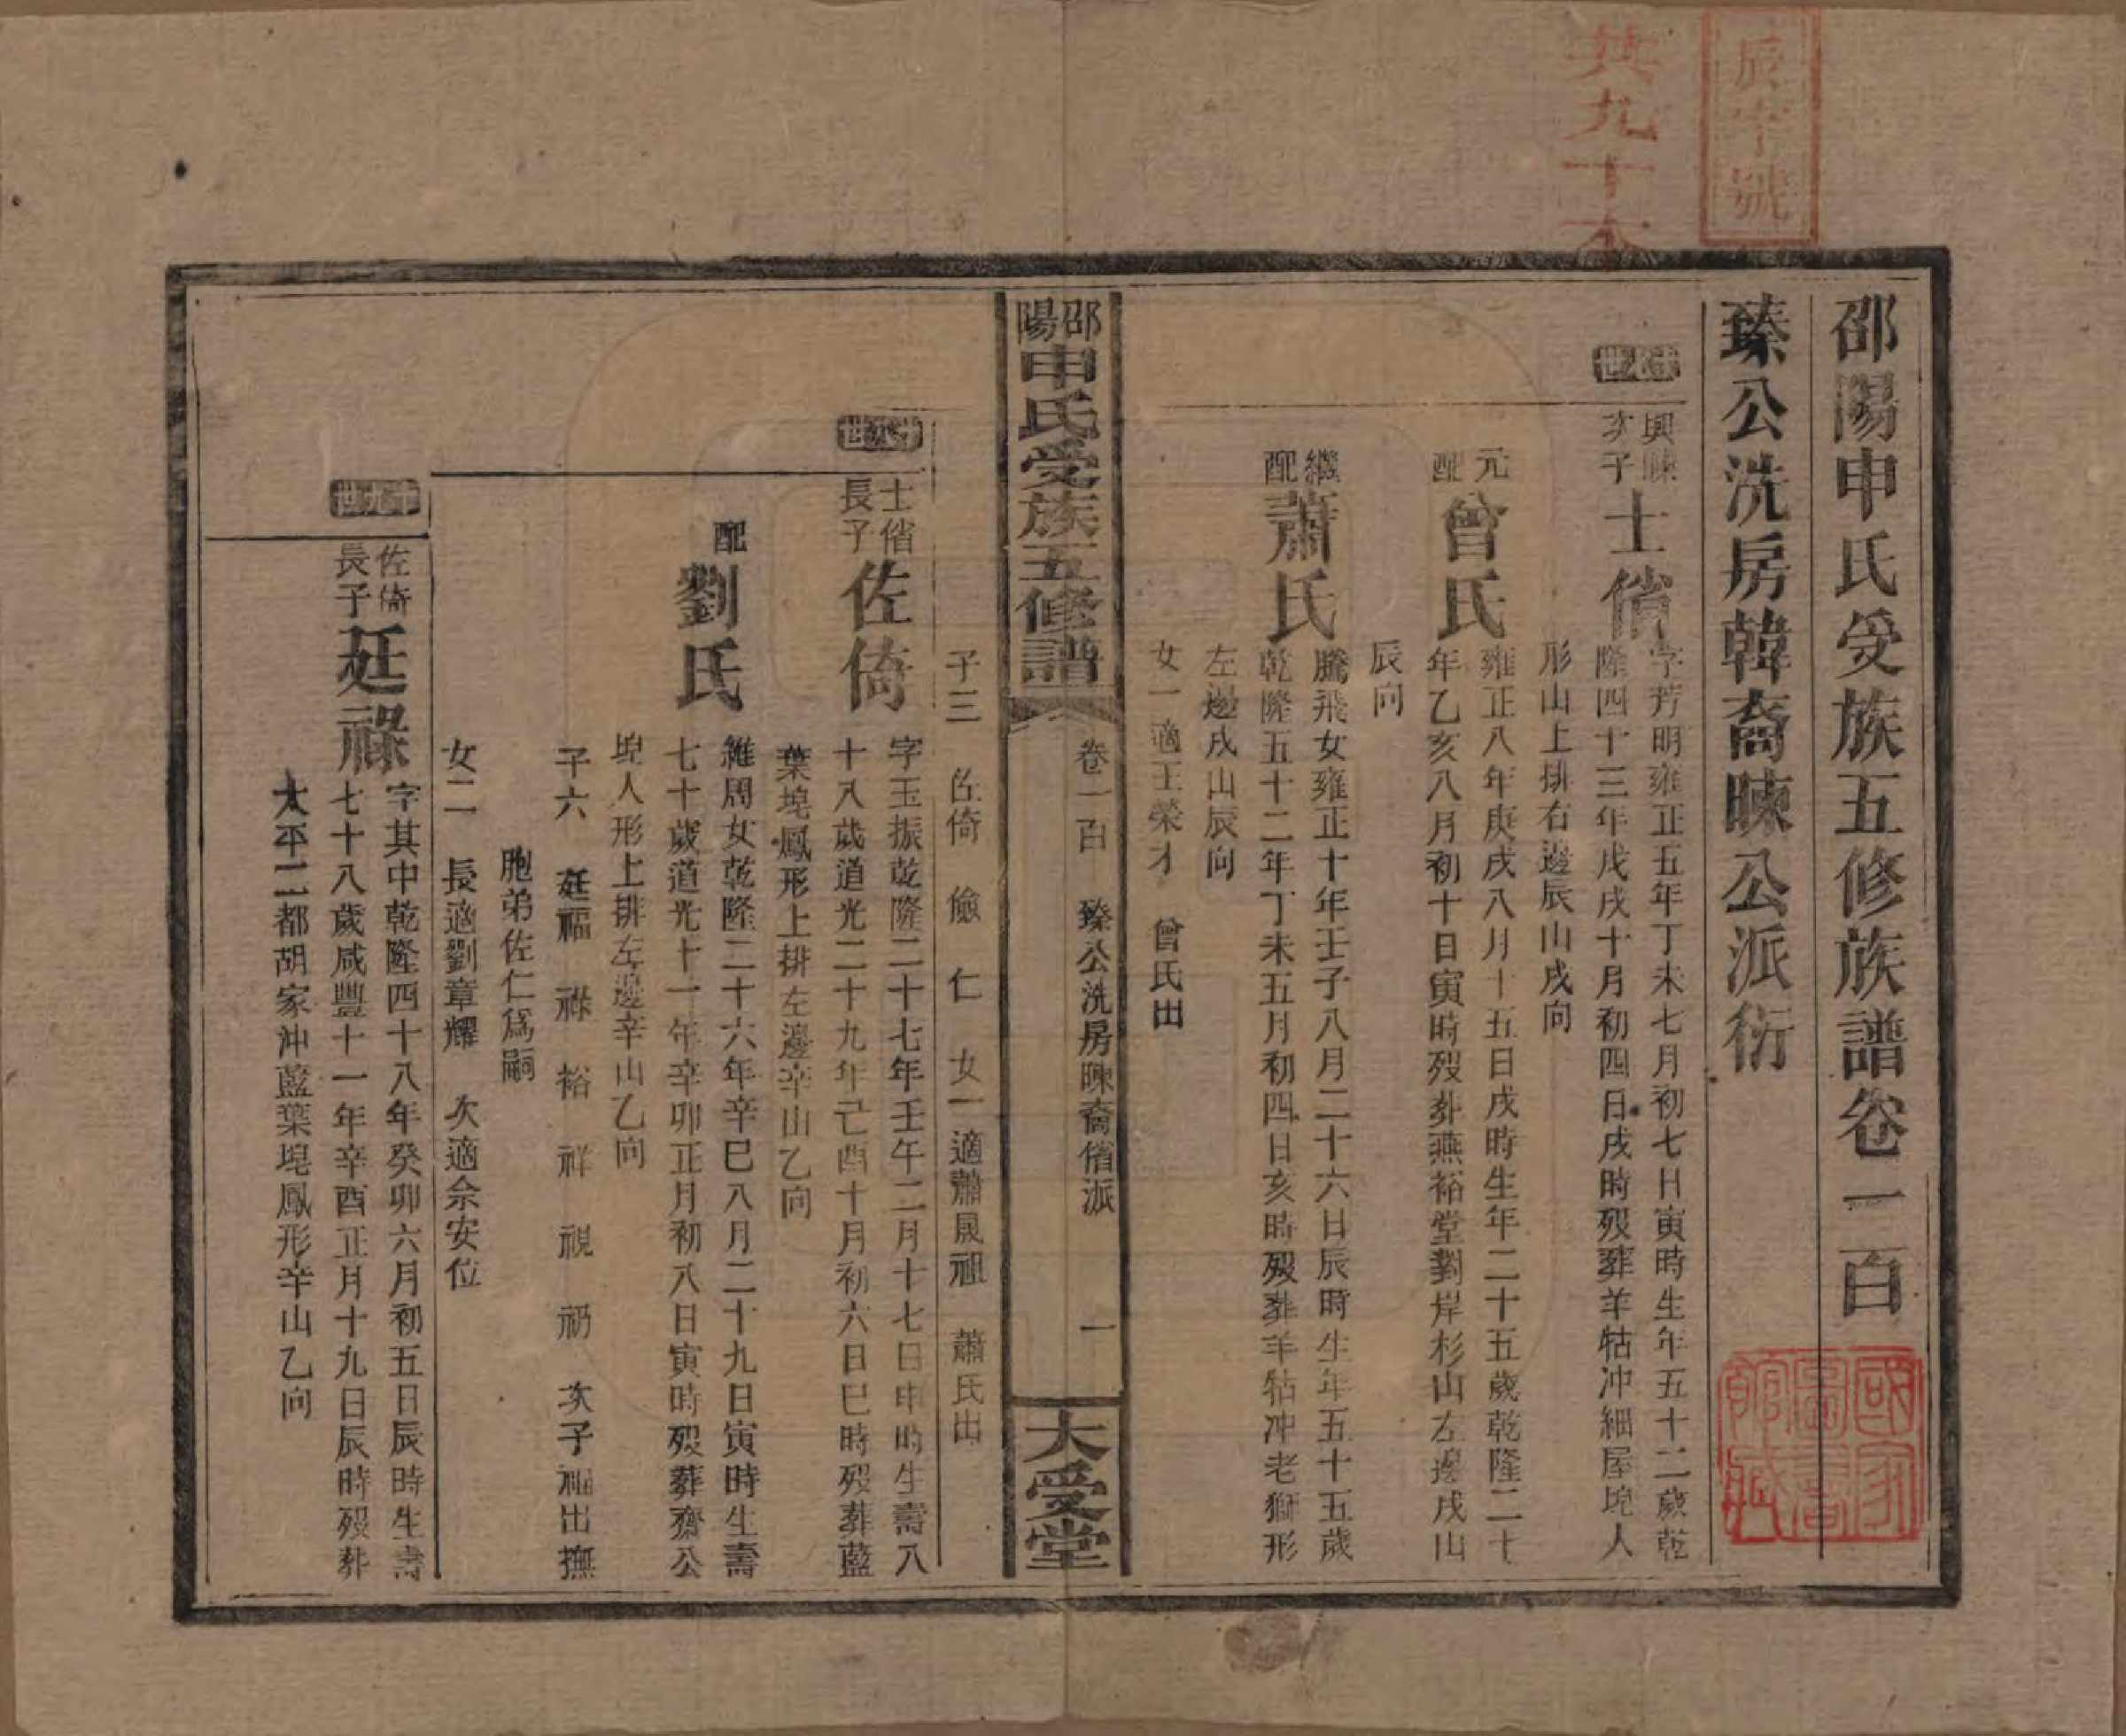 共九十本
辰字號
邵陽申氏受族五修族譜卷一百
臻公洗房韓裔暕公派衍
國家圖書館藏
世
興暕次子士偗
字芳明雍正五年丁未七月初七日寅時生年五十二歲乾
隆四十三年戊戌十月初四日戌時歿葬羊牯冲細屋垸人
形山上排右邊辰山戌向
元配曾氏
雍正八年庚戌八月十五日戌時生年二十五歲乾隆二十
年乙亥八月初十日寅時歿葬燕裕堂對岸杉山左邊戌山
辰向
繼配蕭氏
騰飛女雍正十年壬子八月二十六日辰時生年五十五歲
乾隆五十二年丁未五月初四日亥時歿葬羊牯冲老獅形
左邊戌山辰向
女一適王榮才 曾氏出
邵陽申氏受族五修譜 卷一百 臻公洗房暕裔偗派 一 大受堂
子三 佐倚 儉 仁 女一適蕭晟祖 蕭氏出
十八世
士偗長子佐倚
字玉振乾隆二十七年壬午二月十七日申時生壽八
十八歲道光二十九年己酉十月初六日巳時歿葬藍
葉垸鳳形上排左邊辛山乙向
配劉氏
維周女乾隆二十六年辛巳八月二十九日寅時生壽
七十歲道光十一年辛卯正月初八日寅時歿葬齋公
垸人形上排左邊辛山乙向
子六 廷福 祿 裕 祥 視 礽 次子福出撫
胞弟佐仁爲嗣
女二 長適劉章耀 次適佘安位
十九世
佐倚長子廷祿
字其中乾隆四十八年癸卯六月初五日辰時生壽
七十八歲咸豐十一年辛酉正月十九日辰時歿葬
大平二都胡家冲藍葉垸鳳形辛山乙向